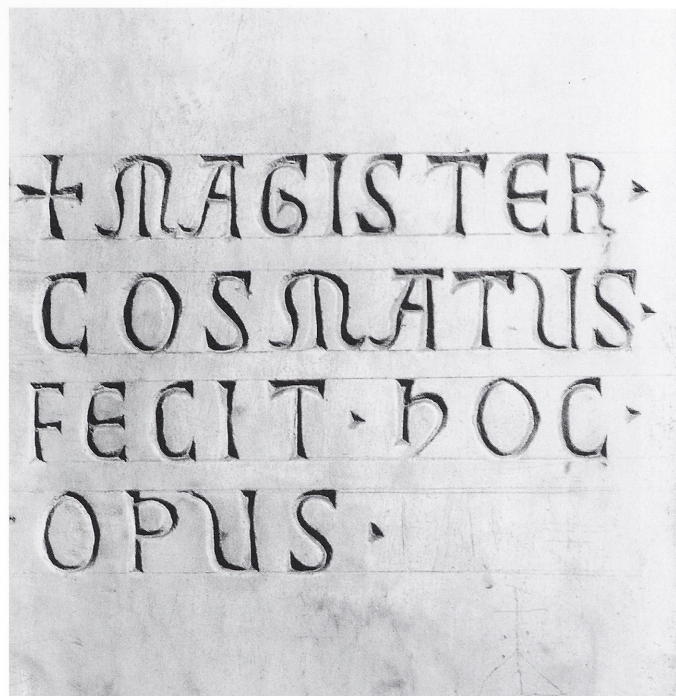 + MAGISTER ·
COSMATUS ·
FECIT · hOC ·
OPUS ·